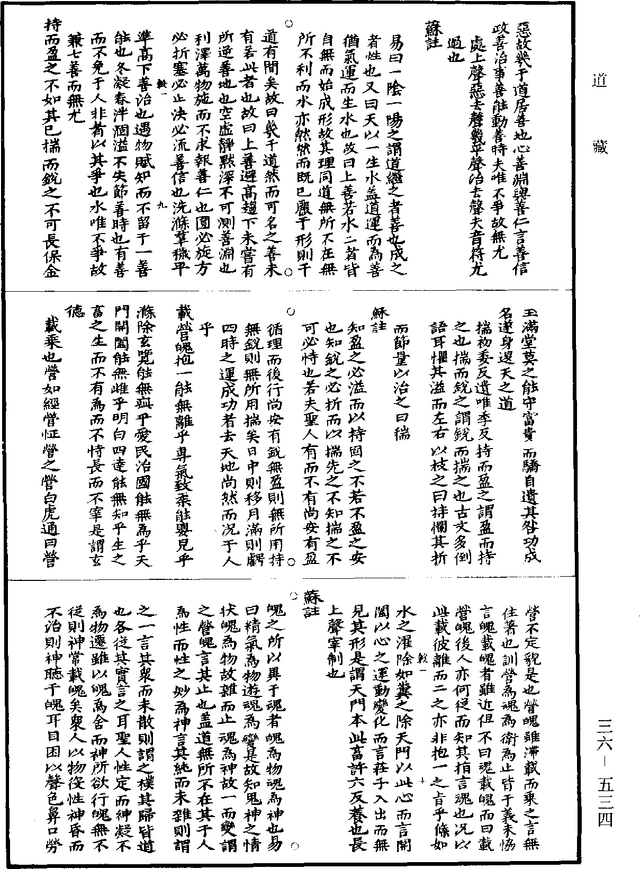 道藏
惡故幾于道居善地心善淵與善仁言善信
政善治事善能動善時夫唯不爭故無尤
處上聲惡去聲幾平聲治去聲夫音符尤
過也
蘇註
易曰一陰一陽之謂道繼之者善也成之
者性也又曰天以一生水蓋道運而為善
猶氣運而生水也故曰上善若水二者皆
自無而始成形故其理同道無所不在無
所不利而水亦然然而既已麗于形則于
道有間矣故曰幾于道然而可名之善未
有若此者也故曰上善避高趨下未嘗有
所逆善地也空虛靜默深不可測善淵也
利澤萬物施而不求報善仁也圓必旋方
必折塞必止決必流善信也洗滌羣穢平
準高下善治也遇物賦知而不留于一善
能也冬凝春泮涸溢不失節善時也有善
而不免于人非者以其爭也水唯不爭故
兼七善而無尤
持而盈之不如其已揣而銳之不可長保金
玉滿堂莫之能守富貴而驕自遺其咎功成
名遂身退天之道
揣初委反遺唯季反持而盈之謂盈而持
之也揣而銳之謂銳而揣之也古文多倒
語耳懼其溢而左右以枝之曰持憪其折
而節量以治之曰揣
蘇註
知盈之必溢而以持固之不若不盈之安
也知銳之必折而以揣先之不知揣之不
可必恃也若夫聖人有而不有尚安有盈
循理而後行尚安有銳無盈則無所用持
無銳則無所用揣矣日中則移月滿則虧
四時之運成功者去天地尚然而況于人
乎
載營魄抱一能無離乎專氣致柔能嬰兒乎
滌除玄覽能無疵乎愛民治國能無為乎天
門開闔能無雌乎明白四達能無知乎生之
畜之生而不有為而不恃長而不宰是謂玄
德
載乘也營如經營怔營之營白虎通曰營
營不定貌是也營魄雖滯載而乘之言無
住著也訓營為魂為衛為止皆于義未恊
言魄載魄者雖近但不曰魂載魄而曰載
營魄後人亦何從而知其指言魂也況以
此載彼離而二之亦非抱一之旨乎滌如
水之濯除如糞之除天門以此心而言開
闔以心之運動變化而言莊子入出而無
見其形是謂天門本此畜許六反養也長
上聲宰制也
蘇註
魄之所以異于魂者魄為物魂為神也易
曰精氣為物遊魂為變是故知鬼神之情
狀魄為物故雜而止魂為神故一而變謂
之營魄言其止也蓋道無所不在其于人
為性而性之妙為神言其純而未雜則謂
之一言其聚而未散則謂之樸其歸皆道
也各從其實言之耳聖人性定而神凝不
為物遷雖以魄為舍而神所欲行魄無不
從則神常載魄矣衆人以物役性神昏而
不治則神聽于魄耳目困以聲色鼻口勞
三六—五三四